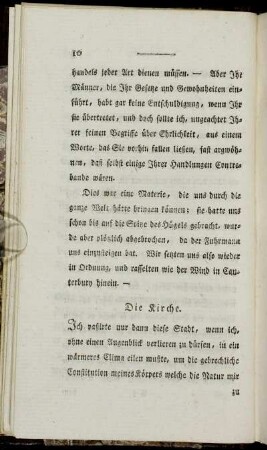 10
handels jeder Art dienen müssen. — Aber Ihr
Männer, die Ihr Gesetze und Gewohnheiten ein-
führt, habt gar keine Entschuldigung, wenn Ihr
sie übertretet, und doch sollte ich, ungeachtet Ihr
rer feinen Begriffe über Ehrlichkeit, aus einem
Worte, das Sie vorhin fallen ließen, fast argwöh-
nen, daß selbst einige Ihrer Handlungen Contre-
bande wären.
Dies war eine Materie, die uns durch die
ganze Welt hätte bringen können; sie hatte uns
schon bis auf die Spitze des Hügels gebracht, wur-
de aber plötzlich abgebrochen, da der Fuhrmann
uns einzusteigen bat. Wir setzten uns also wieder
in Ordnung, und rasselten wie der Wind in Can-
terbury hinein. —
Die Kirche.
Ich passirte nur dann diese Stadt, wenn ich,
ohne einen Augenblick verlieren zu dürfen, in ein
wärmeres Clima eilen mußte, um die gebrechliche
Constitution meines Körpers welche die Natur mir
zu